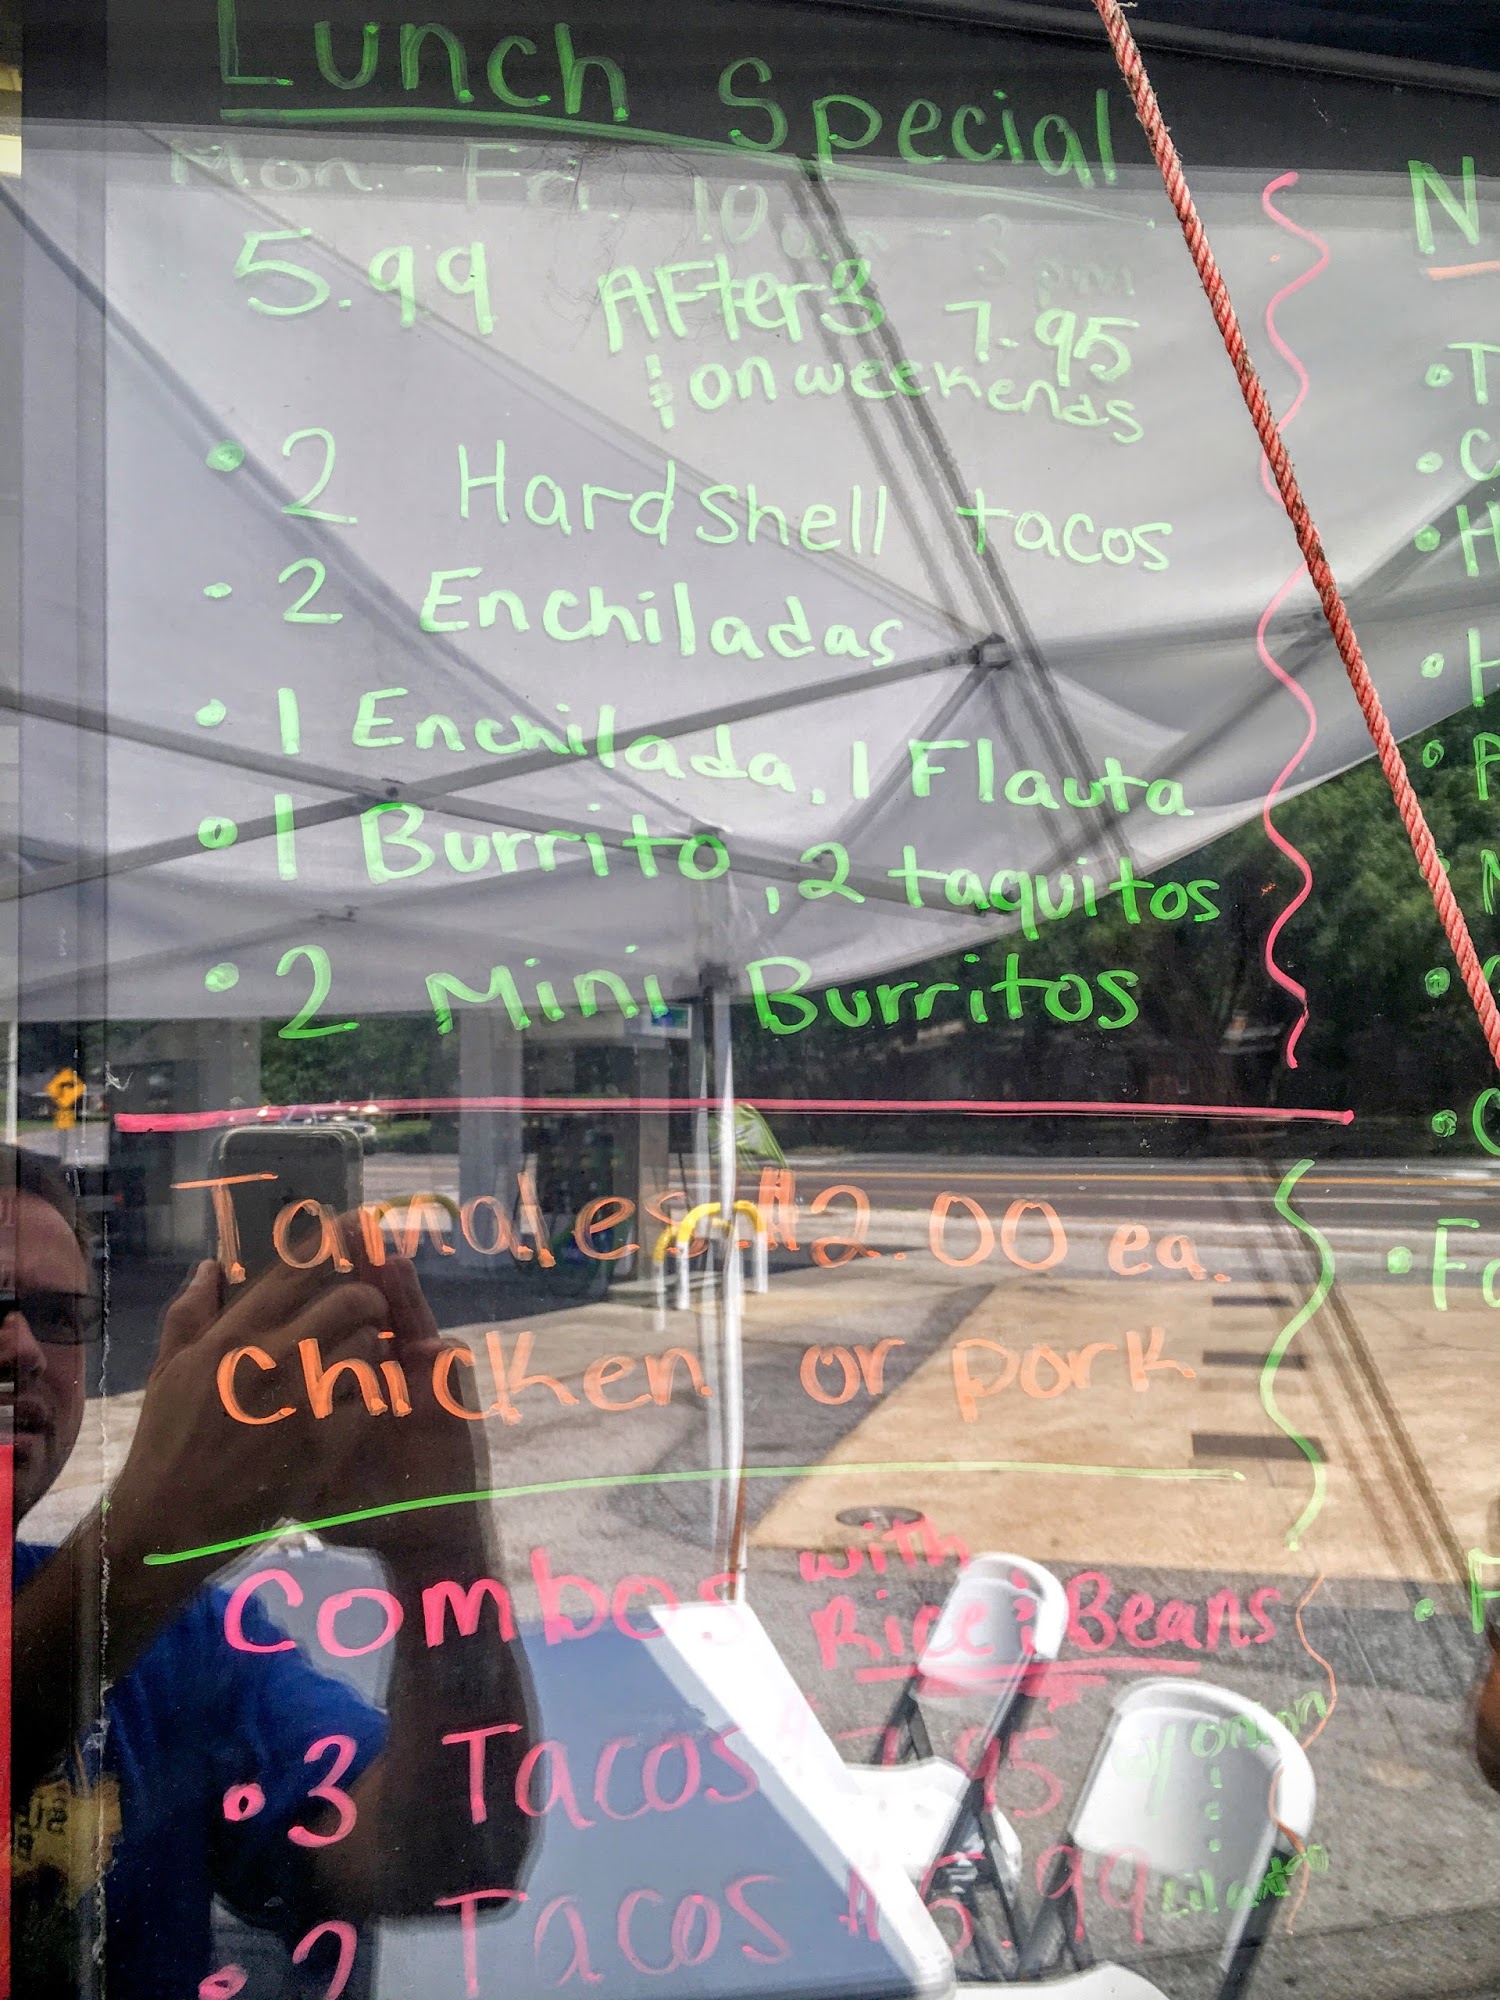 Lunch Special
Mon.-Fri. 10am-3pm
5.99 After 3 7.95
& on weekends
• 2 Hardshell tacos
• 2 Enchiladas
• 1 Enchilada, 1 Flauta
• 1 Burrito, 2 taquitos
• 2 Mini Burritos
Tamales $2.00 ea.
Chicken or pork
Combos with Rice & Beans
• 3 Tacos $7.95
• 2 Tacos $6.99
w/ onion & cilantro